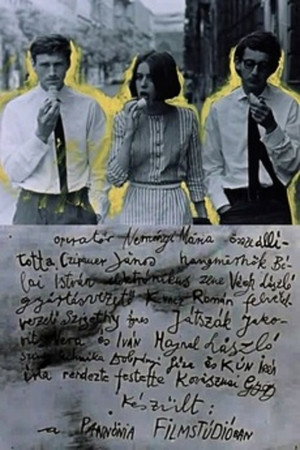 operatőr Neményi Mária összeállí-
totta Czipauer János hangmérnök Bé-
lai István elektrónikus zene Végh László
gyártásvezető Kunz Román felvétel
vezető Szigethy Játszák Jako-
vits Vera és Iván Hajnal László
színes technika Dobrányi Géza és KÚN Irén
írta rendezte festette Kovásznai György
Készült:
a PANNÓNIA FILMSTÚDIÓBAN